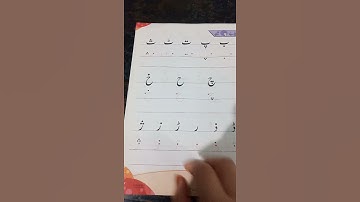 ب پ ت ٹ ث
چ ح خ
ذ ر ڑ ز ژ